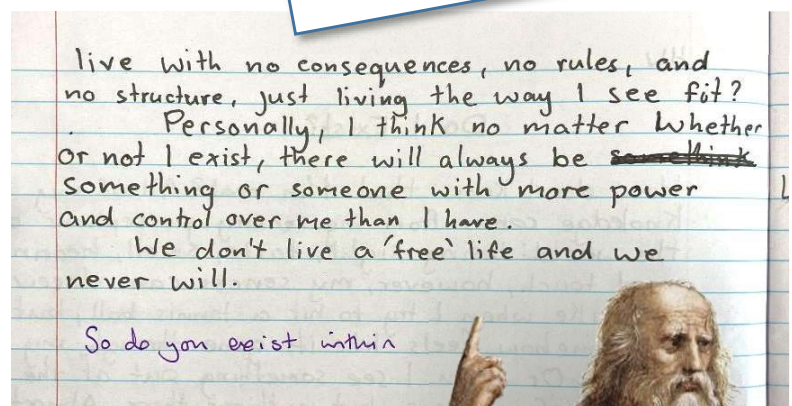 live with no consequences, no rules, and
no structure, just living the way I see fit?
Personally, I think no matter whether
or not I exist, there will always be somethink
something or someone with more power
and control over me than I have.
We don't live a 'free' life and we
never will.
So do you exist within